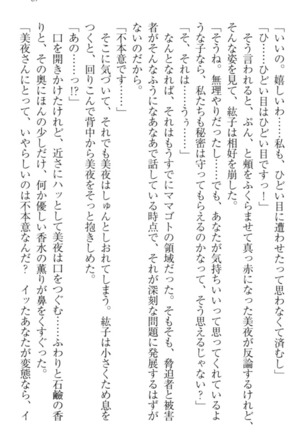 「いいの。嬉しいわ……私も、ひどい目に遭ったって思わなくて済むし」
「ひ……ひどい目はひどい目ですっ！」
そう言われると、ぷん、と頬をふくらませて真っ赤になった美夜が反論するけれど、
そんな姿を見て、紘子は相好を崩した。
「そうね。無理やりだったし……でも、あなたが気持ちいいって思ってくれているよ
うな子なら、私たちも秘密は守ってもらえるのかなって、そう思えるじゃない？」
「そ、それは……うぅ……」
なんとなれば、それはもうすでにママゴトの領域だった。そもそも、脅迫者と被害
者がそんなふうになあなあで話している時点で、それが深刻な問題に発展するはずが
ないのだから。
「不本意です……」
そこに気づいて、それでも美夜はしゅんとしおれてしまう。紘子は小さくため息を
つくと、回りこんで背中から美夜をそっと抱きしめた。
「あ……っ!?」
口を開きかけたけれど、近さにハッとして美夜は口をつぐむ……ふわりと石鹸の香
りと、その奥にほんの少しだけ、何か優しい香水の薫りが鼻をくすぐった。
「美夜さんにとって、いやらしいのは不本意なんだ？　イッたあなたが変態なら、イ